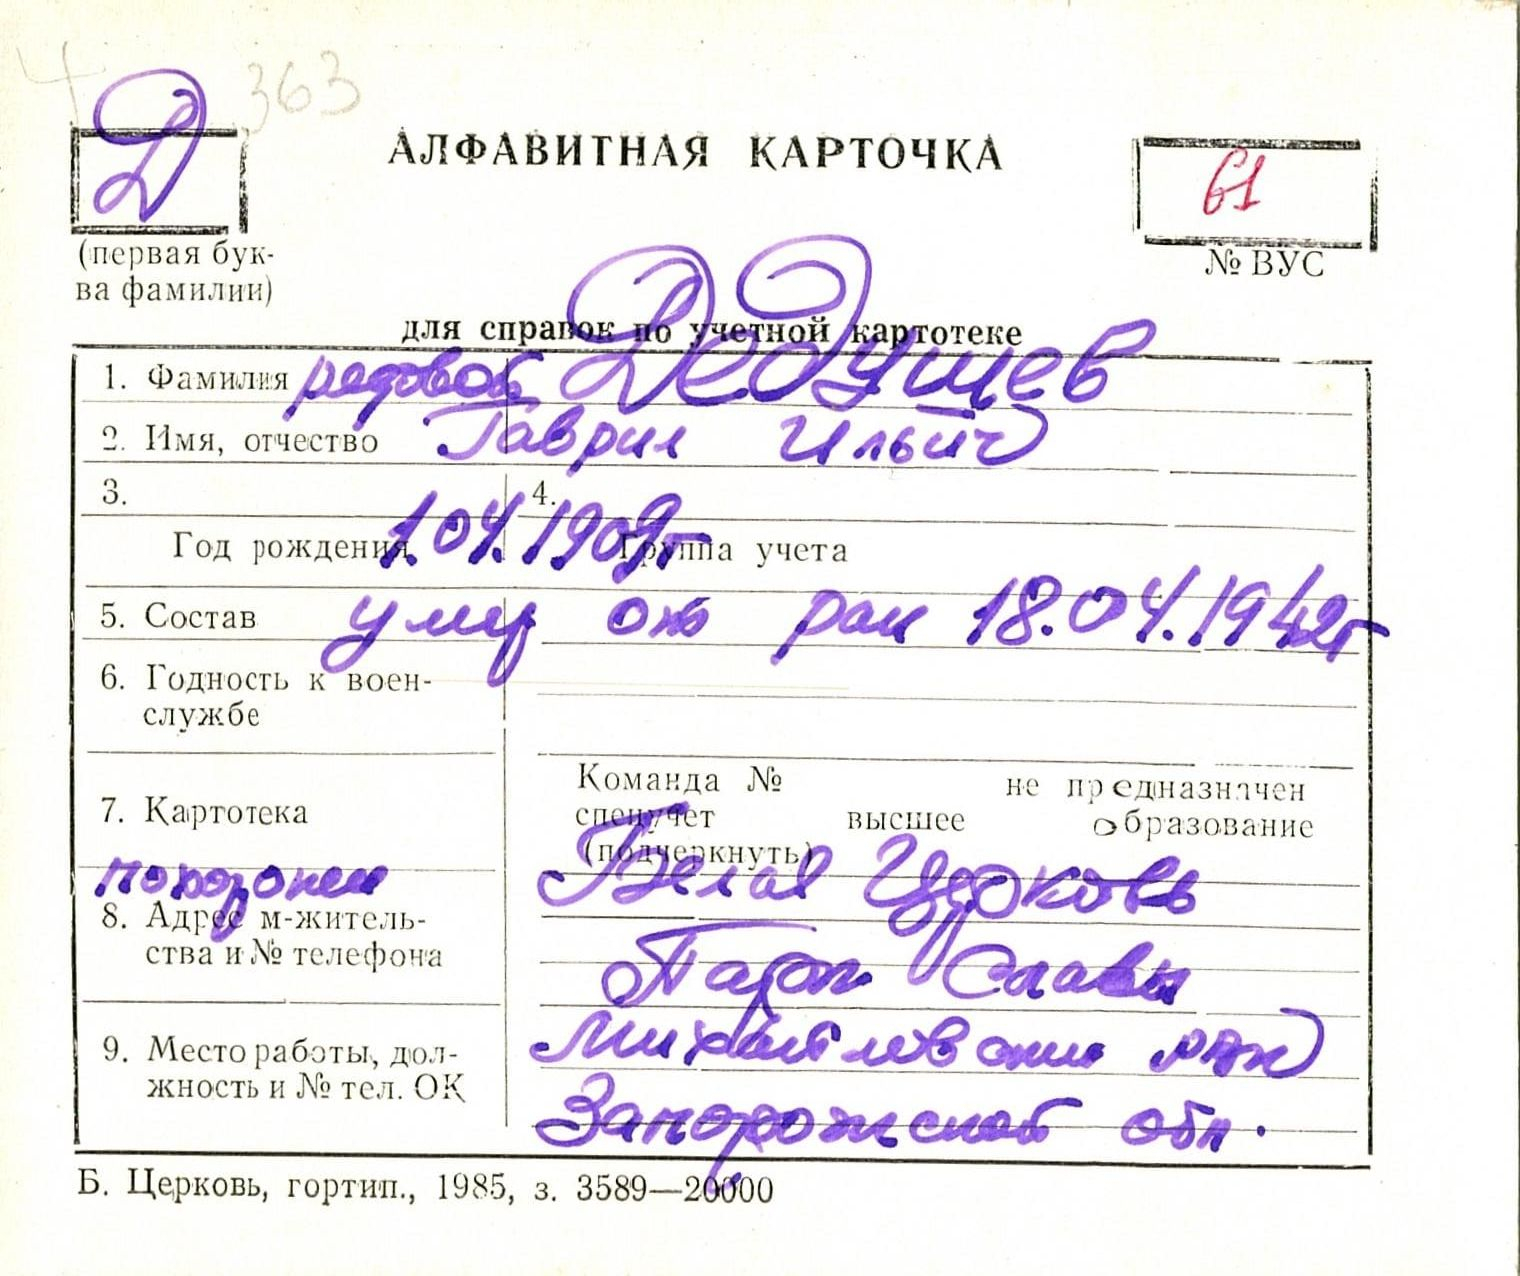 363
Д
АЛФАВИТНАЯ КАРТОЧКА
61
(первая бук-
ва фамилии)
№ ВУС
для справок по учетной картотеке
1. Фамилия рядовой Дедущев
2. Имя, отчество Гаврил Ильич
3.
4.
Год рождения 1.04.1909г
Группа учета
5. Состав умер от ран 18.04.1942г
6. Годность к воен-
службе
Команда № не предназначен
7. Картотека
спецучет высшее образование
(подчеркнуть)
похоронен Белая Церковь
8. Адрес м-житель-
ства и № телефона
Парк Славы
9. Место работы, дол-
жность и № тел. ОК
Михайловский р-н
Запорожской обл.
Б. Церковь, гортип., 1985, з. 3589—20000